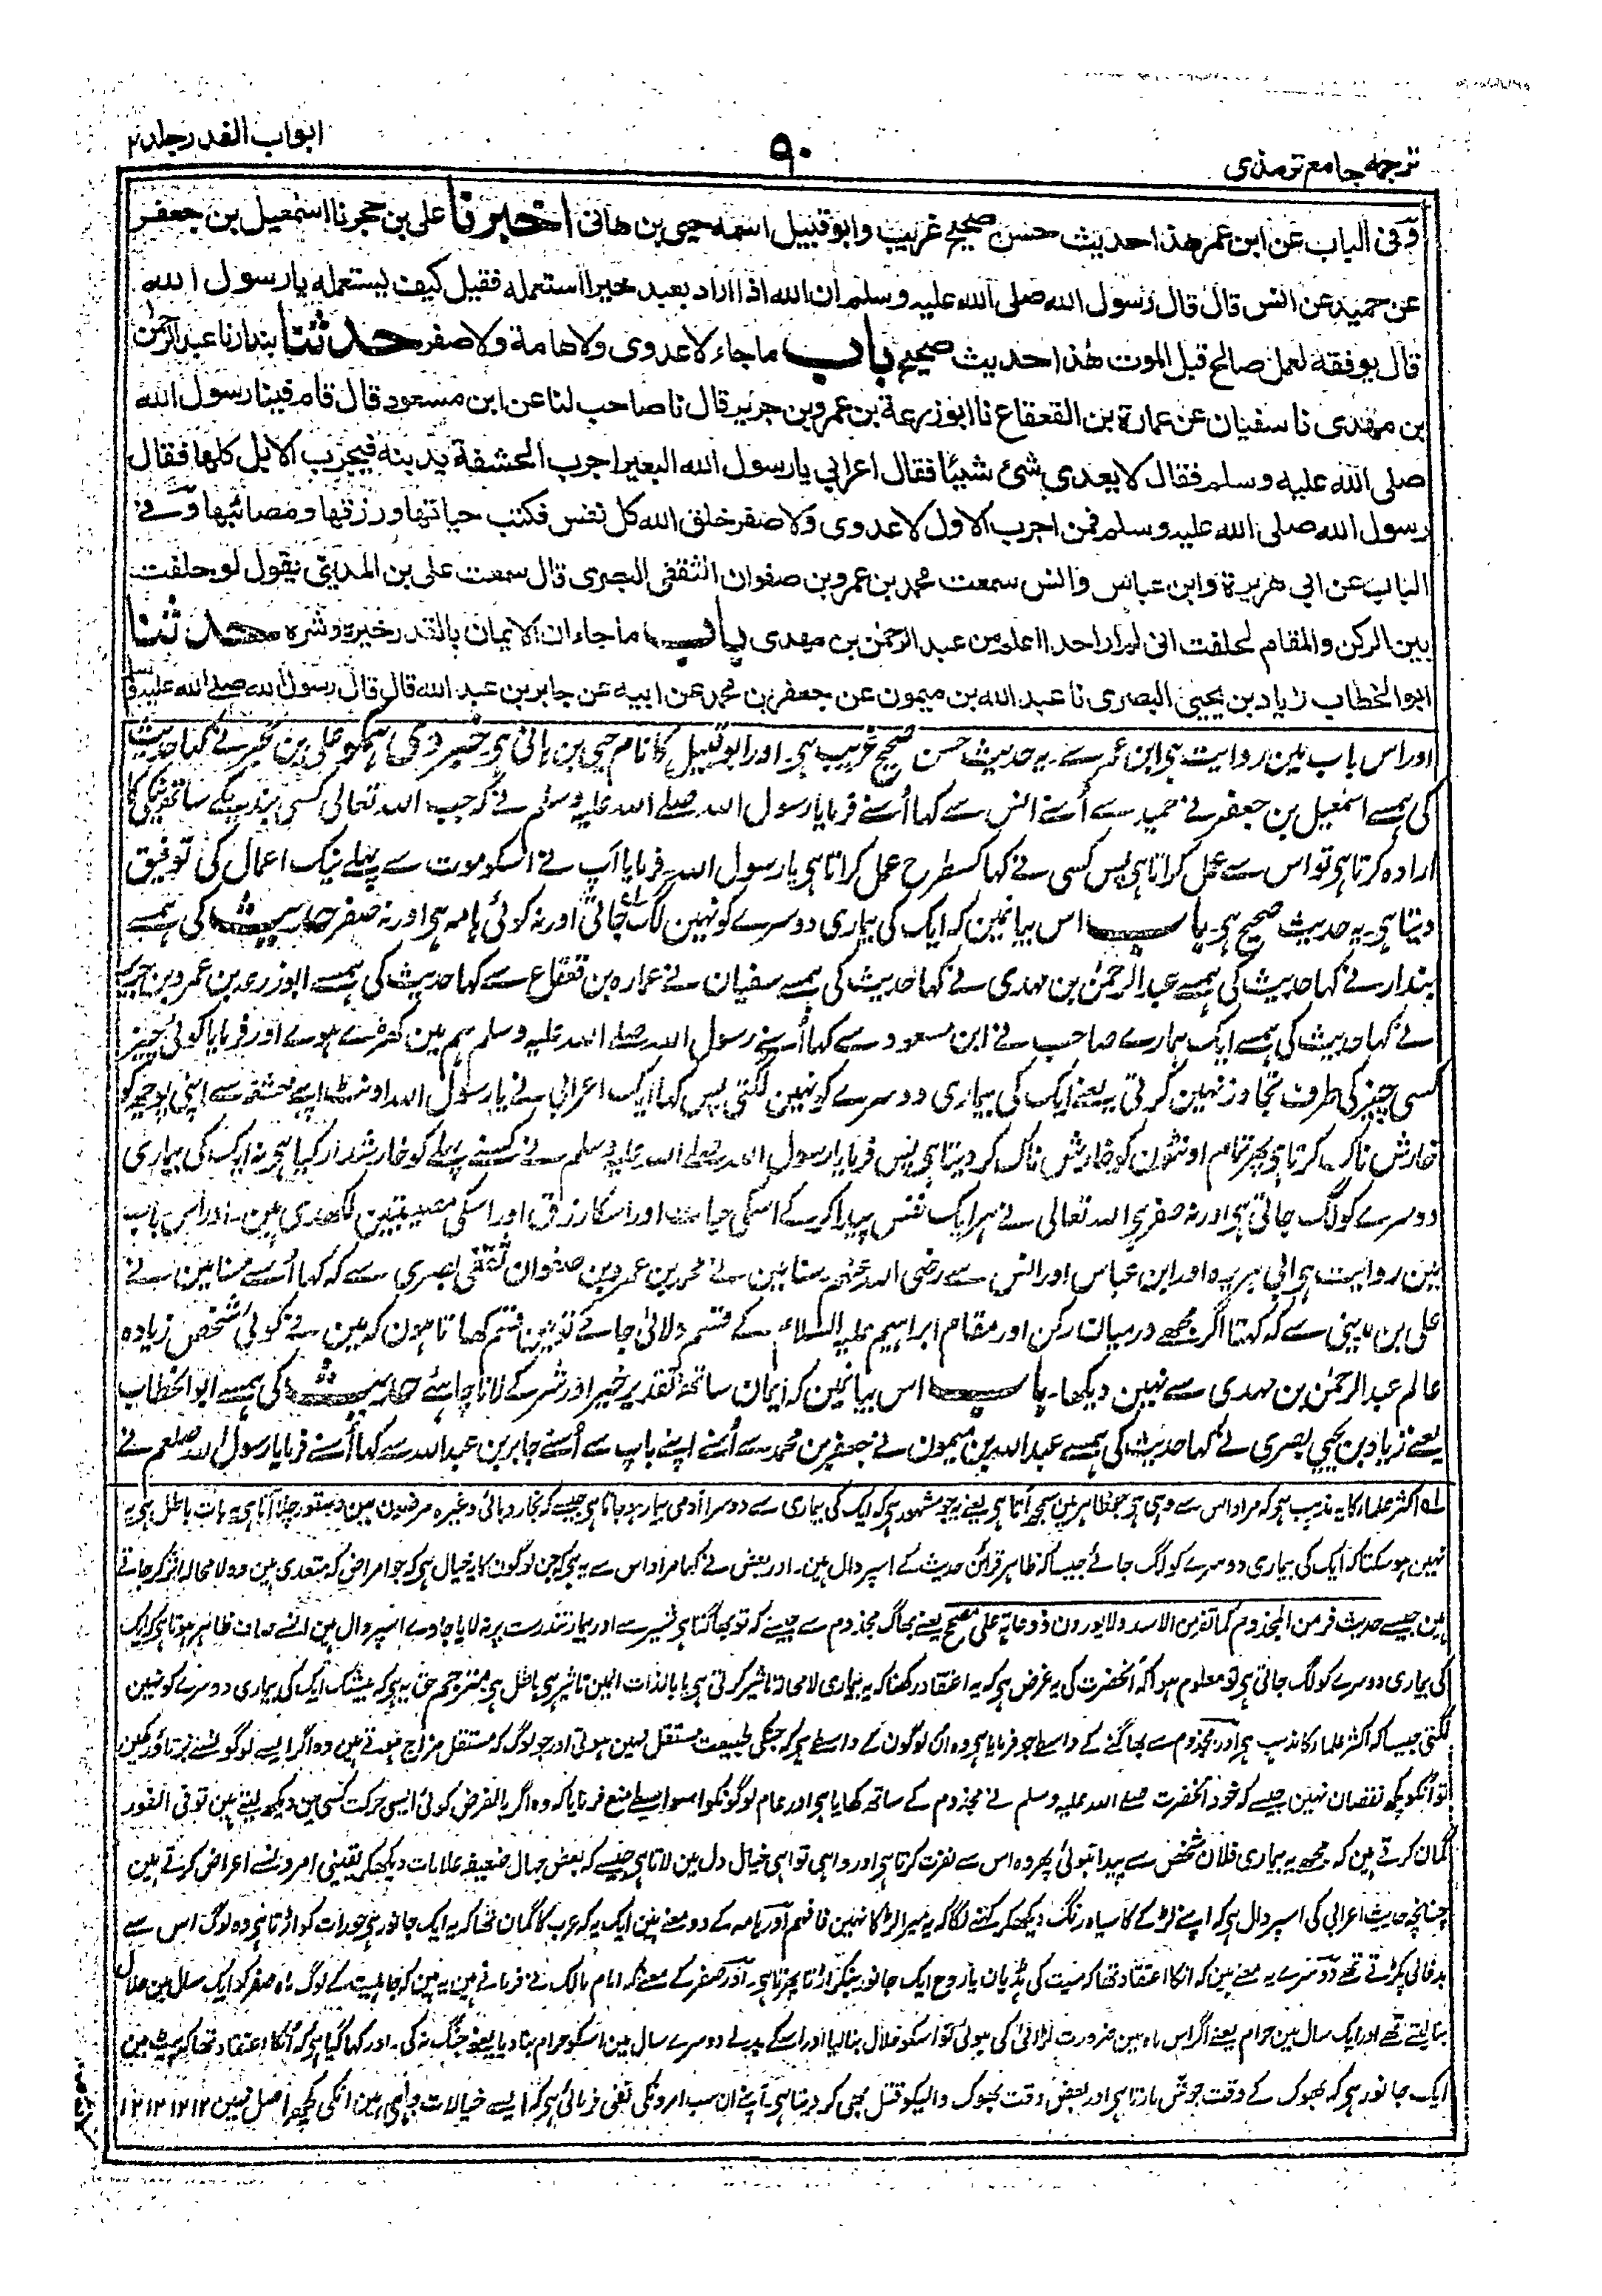 ترجمہ جامع ترمذی
۹۰
ابواب القدر جلد۲
وفی الباب عن ابن عمر هذا حديث حسن صحيح غريب وابو قبيل اسمه حيي بن هانی اخبرنا علی بن حجر نا اسمعيل بن جعفر
عن حميد عن انس قال قال رسول الله صلی الله عليه وسلم ان الله اذا اراد بعبد خيرا استعمله فقيل كيف يستعمله يا رسول الله
قال يوفقه لعمل صالح قبل الموت هذا حديث صحيح باب ما جاء لا عدوی ولا هامة ولا صفر حدثنا بندار نا عبد الرحمٰن
بن مهدی نا سفيان عن عمارة بن القعقاع نا ابو زرعة بن عمرو بن جرير قال نا صاحب لنا عن ابن مسعود قال قام فينا رسول الله
صلی الله عليه وسلم فقال لا يعدی شئ شيئا فقال اعرابی يا رسول الله البعير اجرب الحشفة بذنبه فيجرب الابل كلها فقال
رسول الله صلی الله عليه وسلم فمن اجرب الاول لا عدوی ولا صفر خلق الله كل نفس فكتب حياتها ورزقها ومصائبها وفی
الباب عن ابی هريرة وابن عباس وانس سمعت محمد بن عمرو بن صفوان الثقفی البصری قال سمعت علی بن المدينی يقول لو حلفت
بين الركن والمقام لحلفت انی لم ار احدا اعلم من عبد الرحمٰن بن مهدی باب ما جاء ان الايمان بالقدر خيره وشره حدثنا
ابو الخطاب زياد بن يحيی البصری نا عبد الله بن ميمون عن جعفر بن محمد عن ابيه عن جابر بن عبد الله قال قال رسول الله صلے الله عليه وسلم
اور اس باب مین روایت ہی ابن عمر سے۔ یہ حدیث حسن صحیح غریب ہی۔ اور ابو قبیل کا نام حیی بن ہانی ہی خبر دی ہمکو علی بن حجر نے کہا حدیث
کی ہمسے اسمعیل بن جعفر نے حمید سے اُسنے انس سے کہا اُسنے فرمایا رسول اللہ صلے اللہ علیہ وسلم نے کہ جب اللہ تعالی کسی بندیکے ساتھ نیکی کا
ارادہ کرتا ہی تو اس سے عمل کراتا ہی پس کسی نے کہا کسطرح عمل کراتا ہی یا رسول اللہ فرمایا آپ نے اسکو موت سے پہلے نیک اعمال کی توفیق
دیتا ہی۔ یہ حدیث صحیح ہی۔ باب اس بیانمین کہ ایک کی بیماری دوسرے کو نہین لگ جاتی اور نہ کوئی ہامہ ہی اور نہ صفر حدیث کی ہمسے
بندار نے کہا حدیث کی ہمسے عبد الرحمٰن بن مہدی نے کہا حدیث کی ہمسے سفیان نے عمارہ بن قعقاع سے کہا حدیث کی ہمسے ابو زرعہ بن عمرو بن جریر
نے کہا حدیث کی ہمسے ایک ہمارے صاحب نے ابن مسعود سے کہا اُسنے رسول اللہ صلے اللہ علیہ وسلم ہم مین کھڑے ہوے اور فرمایا کوئی چیز
کسی چیز کی طرف تجاوز نہین کرتی یعنے ایک کی بیماری دوسرے کو نہین لگتی پس کہا ایک اعرابی نے یا رسول اللہ اونٹ اپنے حشفہ سے اپنی پوچھ کو
خارش ناک کرتا ہی پھر تمام اونٹون کو خارش ناک کر دیتا ہی پس فرمایا رسول اللہ صلے اللہ علیہ وسلم نے کسنے پہلے کو خارشدار کیا ہی نہ ایک کی بیماری
دوسرے کو لگ جاتی ہی اور نہ صفر ہی اللہ تعالی نے ہر ایک نفس پیدا کر کے اسکی حیات اور اسکا رزق اور اسکی مصیبتین لکھدی ہین۔ اور اس باب
مین روایت ہی ابی ہریرہ اور ابن عباس اور انس سے رضی اللہ عنہم سنا مین نے محمد بن عمرو بن صفوان ثقفی بصری سے کہ کہا اُسنے سنا مین نے
علی بن مدینی سے کہ کہتا اگر مجھے درمیان رکن اور مقام ابراہیم علیہ السلام کے قسم دلائی جاے تو مین قسم کھاتا ہون کہ مین نے کوئی شخص زیادہ
عالم عبد الرحمٰن بن مہدی سے نہین دیکھا۔ باب اس بیانمین کہ ایمان ساتھ تقدیر خیر اور شر کے لانا چاہئے حدیث کی ہمسے ابو الخطاب
یعنے زیاد بن یحیی بصری نے کہا حدیث کی ہمسے عبد اللہ بن میمون نے جعفر بن محمد سے اُسنے اپنے باپ سے اُسنے جابر بن عبد اللہ سے کہا اُسنے فرمایا رسول اللہ صلعم نے
لہ اکثر علماء کا یہ مذہب ہی کہ مراد اس سے وہی ہی جو ظاہر مین سمجھ آتا ہی یعنے یہ جو مشہور ہی کہ ایک کی بیماری سے دوسرا آدمی بیمار ہو جاتا ہی جیسے کہ بخار وبائی وغیرہ مرضون مین دستور چلا آتا ہی یہ بات باطل ہی یہ
نہین ہو سکتا کہ ایک کی بیماری دوسرے کو لگ جائے جیسا کہ ظاہر قرائن حدیث کے اسپر دال ہین۔ اور بعض نے کہا مراد اس سے یہ ہی کہ جن لوگون کا یہ خیال ہی کہ جو امراض کہ متعدی ہین وہ لا محالہ اثر کر جاتے
ہین جیسے حدیث فر من المجذوم کما تفر من الاسد ولا یوردن ذو عاہۃ علی مصح یعنے بھاگ مجذوم سے جیسے کہ تو بھاگتا ہی شیر سے اور بیمار تندرست پر نہ لایا جاوے اسپر دال ہین انسے صاف ظاہر ہوتا ہی کہ ایک
کی بیماری دوسرے کو لگ جاتی ہی تو معلوم ہوا کہ آنحضرت کی یہ غرض ہی کہ یہ اعتقاد رکھنا کہ یہ بیماری لا محالہ تاثیر کرتی ہی یا بالذات انمین تاثیر ہی باطل ہی مترجم حق یہ ہی کہ بیشک ایک کی بیماری دوسرے کو نہین
لگتی جیسا کہ اکثر علماء کا مذہب ہی اور مجذوم سے بھاگنے کے واسطے جو فرمایا ہی وہ ان لوگون کے واسطے ہی کہ جنکی طبیعت مستقل نہین ہوتی اور جو لوگ کہ مستقل مزاج ہوتے ہین وہ اگر ایسے لوگونسے برتاؤ رکھین
تو انکو کچھ نقصان نہین جیسے کہ خود آنحضرت صلے اللہ علیہ وسلم نے مجذوم کے ساتھ کھایا ہی اور عام لوگونکو اسواسطے منع فرمایا کہ وہ اگر بالفرض کوئی ایسی حرکت کسی مین دیکھ لیتے ہین تو فی الفور
گمان کرتے ہین کہ مجھے یہ بیماری فلان شخص سے پیدا ہوئی پھر وہ اس سے نفرت کرتا ہی اور واہی تواہی خیال دل مین لاتا ہی جیسے کہ بعض جہال ضعیفہ علامات دیکھکر یقینی امرونسے اعراض کرتے ہین
چنانچہ حدیث اعرابی کی اسپر دال ہی کہ اپنے لڑکے کا سیاہ رنگ دیکھکر کہنے لگا کہ یہ میرا لڑکا نہین فافہم اور ہامہ کے دو معنے ہین ایک یہ کہ عرب کا گمان تھا کہ یہ ایک جانور ہی جو رات کو اڑتا ہی وہ لوگ اس سے
بدفالی پکڑتے تھے دوسرے یہ معنے ہین کہ انکا اعتقاد تھا کہ میت کی ہڈیان یا روح ایک جانور بنکر اڑتا پھرتا ہی۔ اور صفر کے معنے کہ امام مالک نے فرمائے ہین یہ ہین کہ جاہلیت کے لوگ ماہ صفر کو ایک سال مین حلال
بنا لیتے تھے اور ایک سال مین حرام یعنے اگر اس ماہ مین ضرورت لڑائی کی ہوئی تو اسکو حلال بنا لیا اور اسکے بدلے دوسرے سال مین اسکو حرام بنا دیا یعنے جنگ نہ کی۔ اور کہا گیا ہی کہ انکا اعتقاد تھا کہ پیٹ مین
ایک جانور ہی کہ بھوک کے وقت جوش مارتا ہی اور بعض وقت بھوک والیکو قتل بھی کر دیتا ہی آپنے ان سب امرونکی نفی فرمائی ہی کہ ایسے خیالات واہی ہین انکی کچھ اصل نہین ۱۲ ۱۲ ۱۲ ۱۲